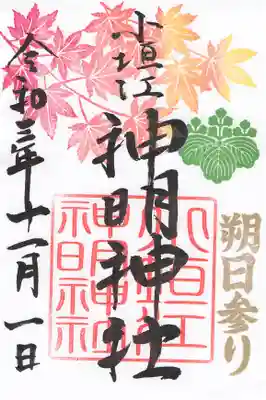 朔日参り
小垣江
神明神社
令和三年十一月一日
小垣江
神明神社